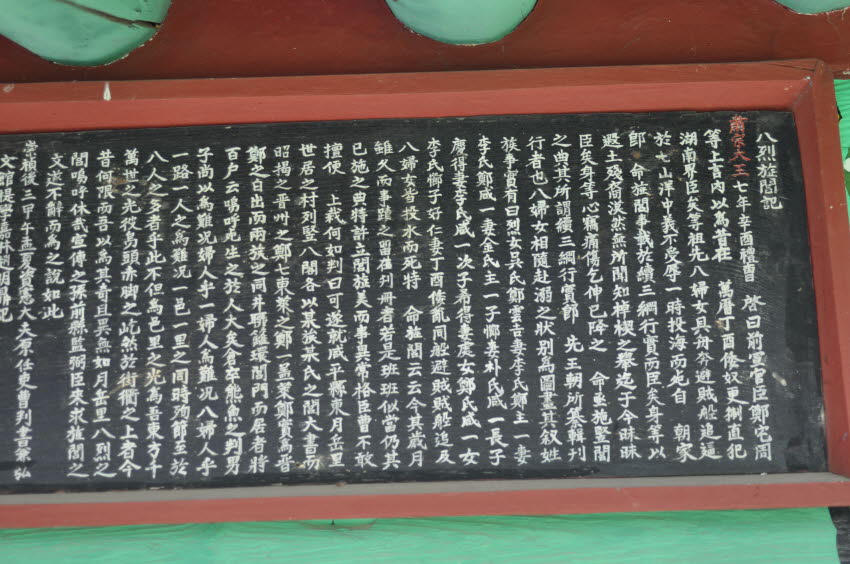 八烈旌閭記
肅宗大王七年辛酉禮曹 啓曰前䕫官臣鄭宅周
等上言內以爲昔在 萬曆丁酉倭奴更猘直犯
湖南界臣矣等祖先八婦女具舟楘避賊船追逼
於七山洋中義不受辱一時投海而死自 朝家
卽 命旌閭事載於續三綱行實而臣矣身等以
遐土殘裔漠然無所聞知棹楔之擧迄于今昧昧
臣矣身等心竊痛傷乞伸已降之 命亟施竪閭
之典其所謂續三綱行實郎 先王朝所纂輯刊
行者也八婦女相隨赴溺之狀別爲圖畫其叙姓
族事實有曰烈女吳氏鄭雲吉妻李氏鄭主一妻
李氏鄭咸一妻金氏主一子慽妻朴氏咸一長子
慶得妻李氏咸一次子希得妻處女鄭氏咸一女
李氏慽子好仁妻丁酉倭亂同船避賊賊船追及
八婦女皆投水而死特 命旌閭云云今其歲月
雖久而事蹟之留在刋冊者若是班班似當仍其
已施之典特許立閭旌美而事異常格臣曹不敢
擅便 上裁何如判曰可遂就咸平縣東月岳里
世居之村列竪八閭各以某族某氏之閭大書而
昭揭之晋州之鄭七東萊之鄭一盖萊鄭實爲晋
鄭之自出而兩族之同井聯籬環閭門而居者將
百戶云嗚呼死生之於人大矣倉卒能魚之判男
子尚以爲難况婦人乎一婦人爲難况八婦人乎
一路一人之爲難况一邑一里之同時殉節至於
八人之多者乎此不但爲邑里之光爲吾東方千
萬世之光佼烏頭赤脚之屹然於街衢之上者今
昔何限而吾以爲其奇且異無如月岳里八烈之
閭嗚呼休哉宣傳之孫前縣監弼臣來求旌閭之
文遂不辭而爲之說如此
崇禎後三甲午孟夏資憲大夫原任吏曹判書兼弘
文館提學